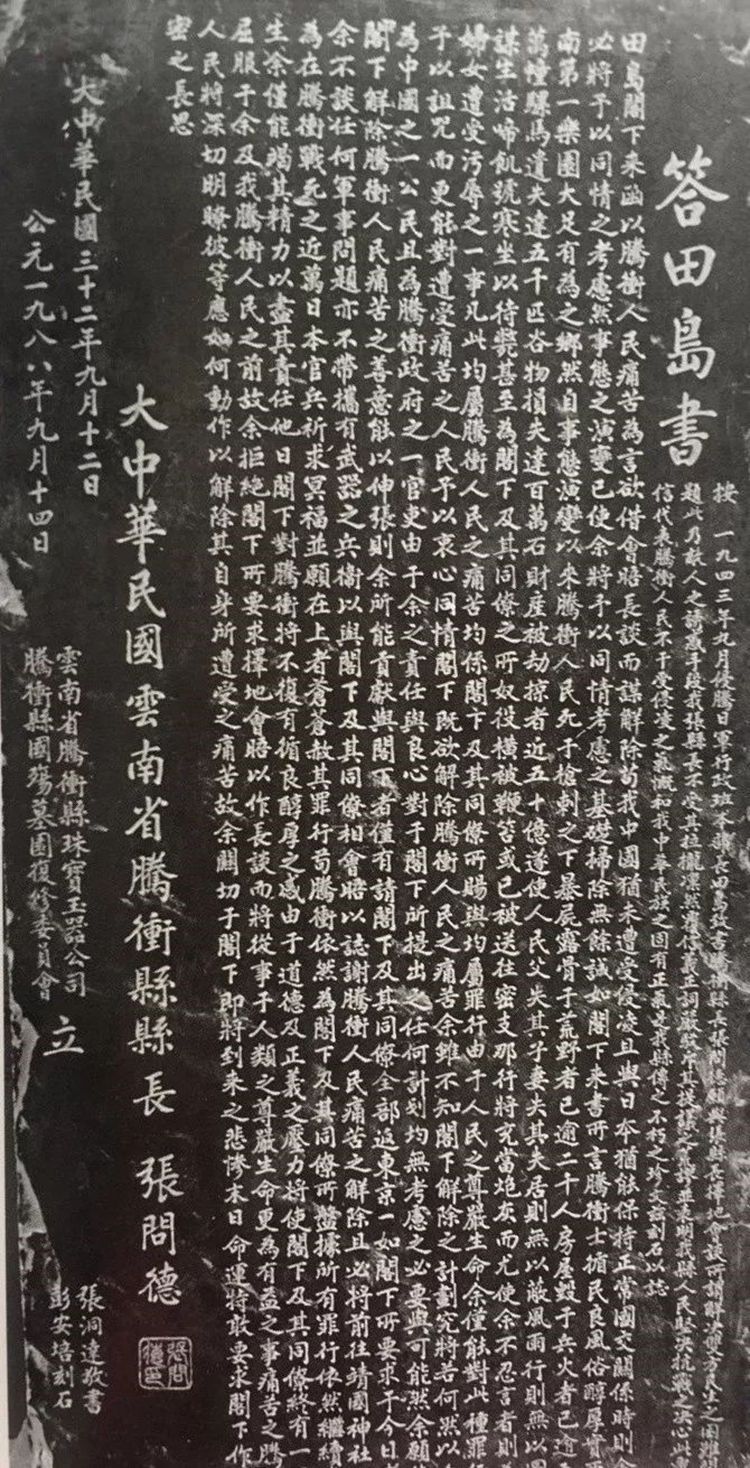 答田島書
按 一九四三年九月侵騰日軍行政班本部長田島致書騰衝縣長張問德願與張縣長擇地會談所謂解決雙方民生之困難問
題此乃敵人之誘惑手段我張縣長不受其拉攏凜然覆信義正詞嚴駁斥其之謬並表明我縣人民堅決抗戰之決心此
信代表騰衝人民不干受侵凌之氣慨和我中華民族之固有正氣是我縣傳之不朽之珍文茲刻石以誌
田島閣下來函以騰衝人民痛苦為言欲借會晤長談而謀解除苟我中國猶未遭受侵凌且與日本猶能保持正常國交關係時則余
必將予以同情之考慮然事態之演變已使余將予以同情考慮之基礎掃除無餘誠如閣下來書所言騰衝士循民良風俗醇厚實西
南第一樂園大足有為之鄉然自事態演變以來騰衝人民死于槍刺之下暴屍露骨于荒野者已逾二千人房屋毀于兵火者已逾五
萬幢騾馬遺失達五千匹谷物損失達百萬石財產被劫掠者近五十億遂使人民父失其子妻失其夫居則無以蔽風雨行則無以圖
謀生活啼飢號寒坐以待斃甚至為閣下及其同僚之所奴役橫被鞭笞或已被送往密支那行將充當炮灰而尤使余不忍言者則為
婦女遭受污辱之一事凡此均屬騰衝人民之痛苦均係閣下及其同僚所賜與均屬罪行由于人民之尊嚴生命余僅能對此種罪行
予以詛咒而更能對遭受痛苦之人民予以衷心同情閣下既欲解除騰衝人民之痛苦余雖不知閣下解除之計劃究將若何然以余
為中國之一公民且為騰衝政府之一官吏由于余之責任與良心對于閣下所提出之任何計划均無考慮之必要與可能然余願使
閣下解除騰衝人民痛苦之善意能以伸張則余所能貢獻與閣下者僅有請閣下及其同僚全部返東京一如閣下所要求于今日者
余不談任何軍事問題亦不帶攜有武器之兵衛以與閣下及其同僚相會晤以誌謝騰衝人民痛苦之解除且必將前往靖國神社
為在騰衝戰死之近萬日本官兵祈求冥福並願在上者蒼蒼赦其罪行苟騰衝依然為閣下及其同僚所盤據所有罪行依然繼續
生余僅能竭其精力以盡其責任他日閣下對騰衝將不復有循良醇厚之感由于道德及正義之壓力將使閣下及其同僚終有一
屈服于余及我騰衝人民之前故余拒絕閣下所要求擇地會晤以作長談而將從事于人類之尊嚴生命更為有益之事痛苦之騰
人民將深切明瞭彼等應如何動作以解除其自身所遭受之痛苦故余關切于閣下即將到來之悲慘末日命運特敢要求閣下作
密之長思
大中華民國雲南省騰衝縣縣長 張問德
大中華民國三十二年九月十二日
公元一九八八年九月十四日
雲南省騰衝縣珠寶玉器公司
騰衝縣國殤墓園復修委員會
立
張洞達敬書
彭安培刻石